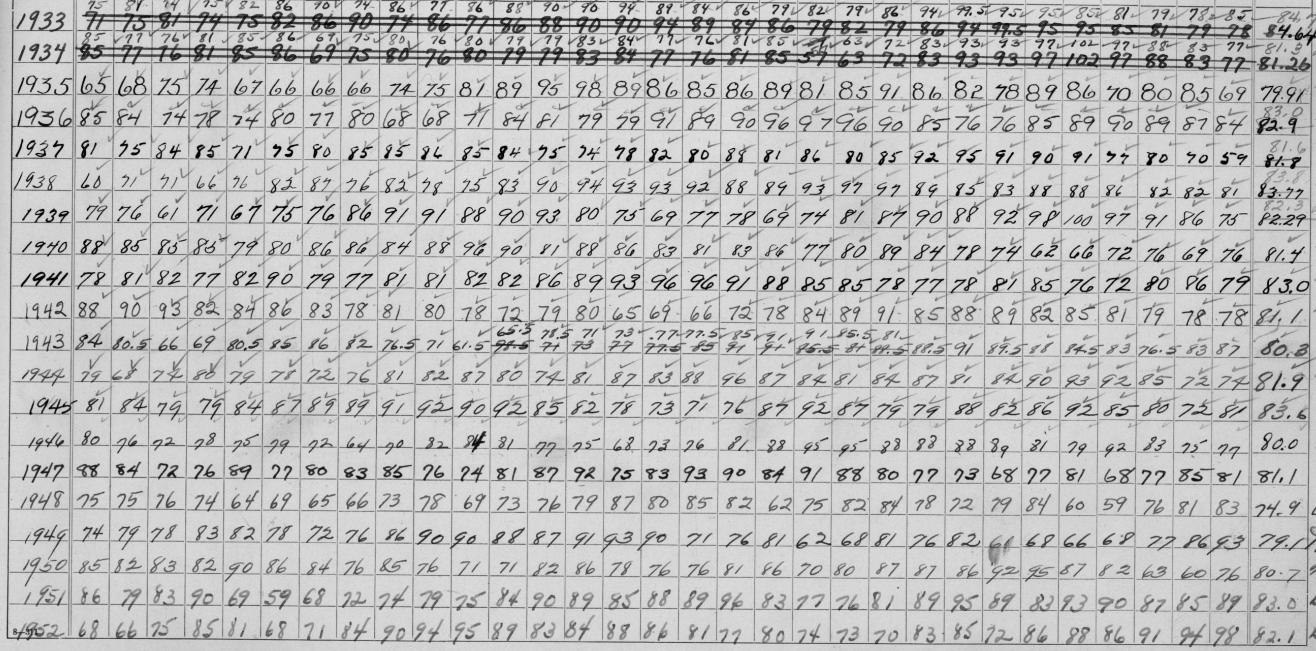 75 84 74 75 82 86 90 74 86 77 86 88 90 90 94 89 84 86 79 82 79 86 94 99.5 95 95 85 81 79 78 85 84.
1933 71 75 81 74 75 82 86 90 74 86 77 86 88 90 90 94 89 84 86 79 82 79 86 94 99.5 95 95 85 81 79 78 84.64
85 77 76 81 85 86 69 75 80 76 80 79 79 83 84 77 76 81 85 59 63 72 83 93 93 97 102 97 88 83 77 81.3
1934 85 77 76 81 85 86 69 75 80 76 80 79 79 83 84 77 76 81 85 59 63 72 83 93 93 97 102 97 88 83 77 81.26
1935 65 68 75 74 67 66 66 66 74 75 81 89 95 98 89 86 85 86 89 81 85 91 86 82 78 89 86 70 80 85 69 79.91
83.0
1936 85 84 74 78 74 80 77 80 68 68 71 84 81 79 79 91 89 90 96 97 96 90 85 76 76 85 89 90 89 87 84 82.9
81.6
1937 81 75 84 85 71 75 80 85 85 86 85 84 75 74 78 82 80 88 81 86 80 85 92 95 91 90 91 77 80 70 59 81.8
83.8
1938 60 71 71 66 76 82 87 76 82 78 75 83 90 94 93 93 92 88 89 93 97 97 89 85 83 88 88 86 82 82 81 83.77
82.3
1939 79 76 61 71 67 75 76 86 91 91 88 90 93 80 75 69 77 78 69 74 81 87 90 88 92 98 100 97 91 86 75 82.29
1940 88 85 85 85 79 80 86 86 84 88 96 90 81 88 86 83 81 83 86 77 80 89 84 78 74 62 66 72 76 69 76 81.4
1941 78 81 82 77 82 90 79 77 81 81 82 82 86 89 93 96 96 91 88 85 85 78 77 78 81 85 76 72 80 86 79 83.0
1942 88 90 93 82 84 86 83 78 81 80 78 72 79 80 65 69 66 72 78 84 89 91 85 88 89 82 85 81 79 78 78 81.1
65.5 78.5 71 73 77 77.5 85 91 91 85.5 81
1943 84 80.5 66 69 80.5 85 86 82 76.5 71 61.5 71 73 77 77.5 85 91 91 85.5 81 88.5 91 89.5 88 84.5 83 76.5 83 87 80.3
1944 79 68 74 80 79 78 72 76 81 82 87 80 74 81 87 83 88 96 87 84 81 84 87 81 84 90 93 92 85 72 74 81.9
1945 81 84 79 79 84 87 89 89 91 92 90 92 85 82 78 73 71 76 87 92 87 79 79 88 82 86 92 85 80 72 81 83.6
1946 80 76 72 78 75 79 72 64 70 82 84 81 77 75 68 73 76 81 88 95 95 88 88 88 89 81 79 92 83 75 77 80.0
1947 88 84 72 76 89 77 80 83 85 76 74 81 87 92 75 83 93 90 84 91 88 80 77 73 68 77 81 68 77 85 81 81.1
1948 75 75 76 74 64 69 65 66 73 78 69 73 76 79 87 80 85 82 62 75 82 84 78 72 79 84 60 59 76 81 83 74.9
1949 74 79 78 83 82 78 72 76 86 90 90 88 87 91 93 90 71 76 81 62 68 81 76 82 68 66 68 77 86 93 79.1
1950 85 82 83 82 90 86 84 76 85 76 71 71 82 86 78 76 76 81 86 70 80 87 87 86 92 95 87 82 63 60 76 80.7
1951 86 79 83 90 69 59 68 72 74 79 75 84 90 89 85 88 89 96 83 77 76 81 89 95 89 83 93 90 87 85 89 83.0
1952 68 66 75 85 81 68 71 84 90 94 95 89 83 84 88 86 81 77 80 74 73 70 83 85 72 86 88 86 91 94 98 82.1